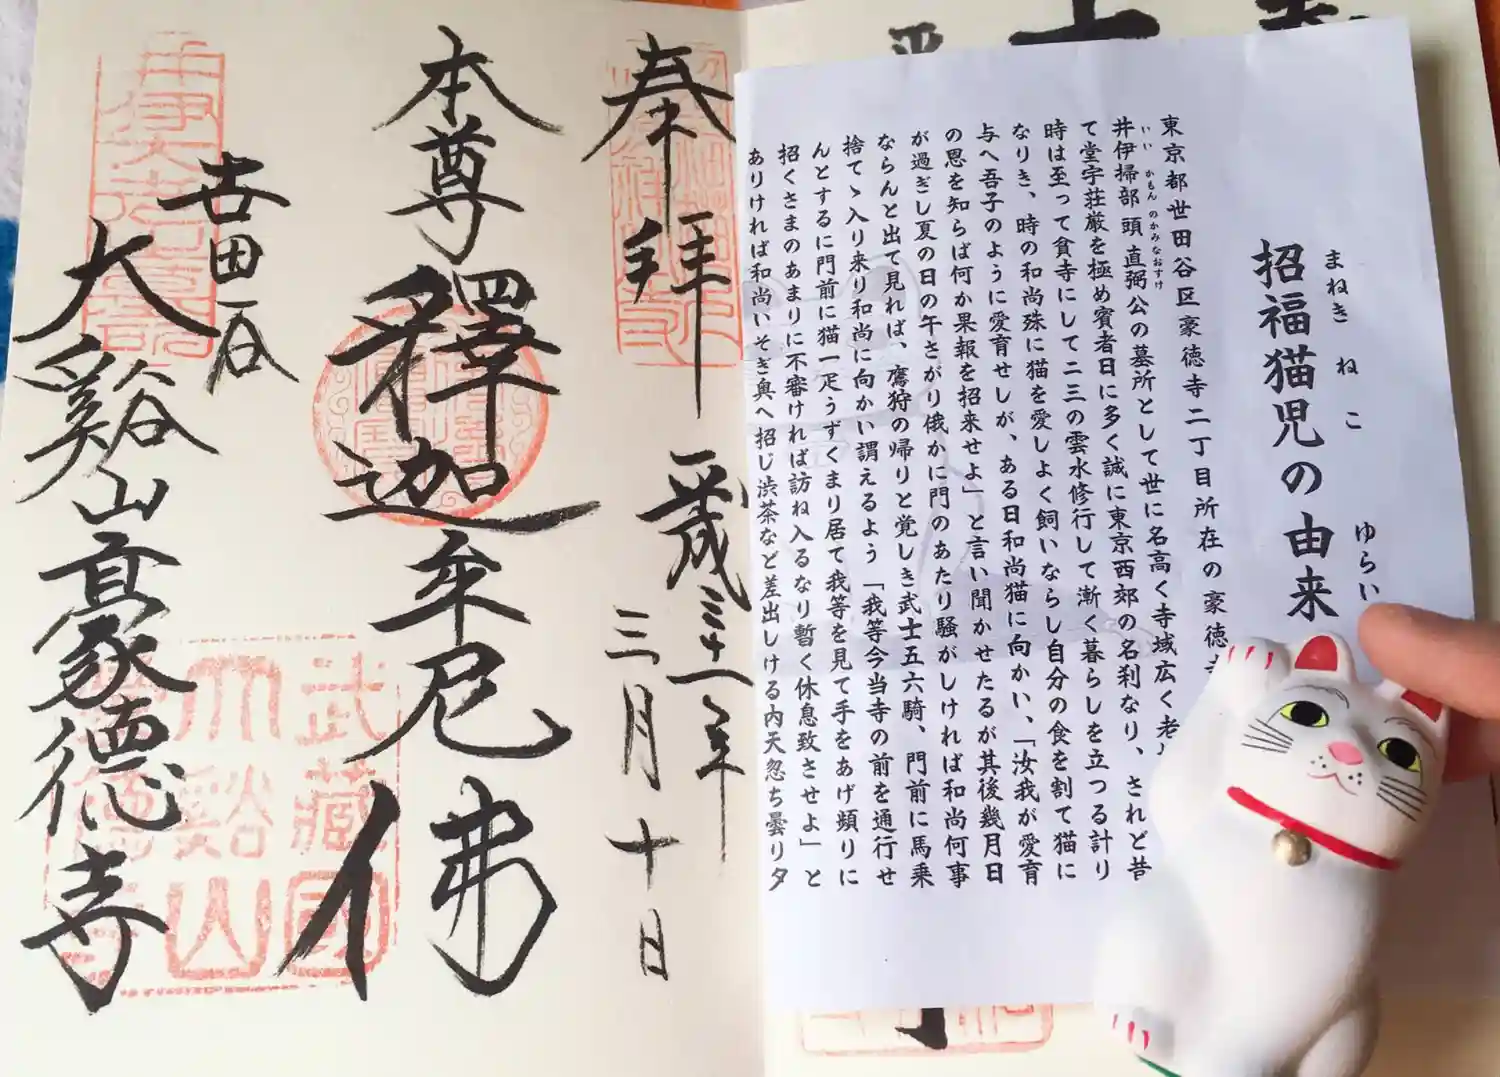 招福猫児の由来
まねき ねこ ゆらい
東京都世田谷区豪徳寺二丁目所在の豪徳
井伊掃部頭直弼公の墓所として世に名高く寺域広く老
いい かもん のかみなおすけ
て堂宇荘厳を極め賓者日に多く誠に東京西郊の名刹なり、されど昔
時は至って貧寺にして二三の雲水修行して漸く暮らしを立つる計り
なりき、時の和尚殊に猫を愛しよく飼いならし自分の食を割て猫に
与へ吾子のように愛育せしが、ある日和尚猫に向かい、「汝我が愛育
の恩を知らば何か果報を招来せよ」と言い聞かせたるが其後幾月日
が過ぎし夏の日の午さがり俄かに門のあたり騒がしければ和尚何事
ならんと出て見れば、鷹狩の帰りと覚しき武士五六騎、門前に馬来
捨てゝ入り来り和尚に向かい謂えるよう「我等今当寺の前を通行せ
んとするに門前に猫一疋うずくまり居て我等を見て手をあげ頻りに
招くさまのあまりに不審ければ訪ね入るなり暫く休息致させよ」と
ありければ和尚いそぎ奥へ招じ渋茶など差出しける内天忽ち曇り夕
奉拝 平成三十一年
三月十日
本尊 釋迦牟尼佛
世田谷
大谿山豪德寺
武蔵國
大谿山